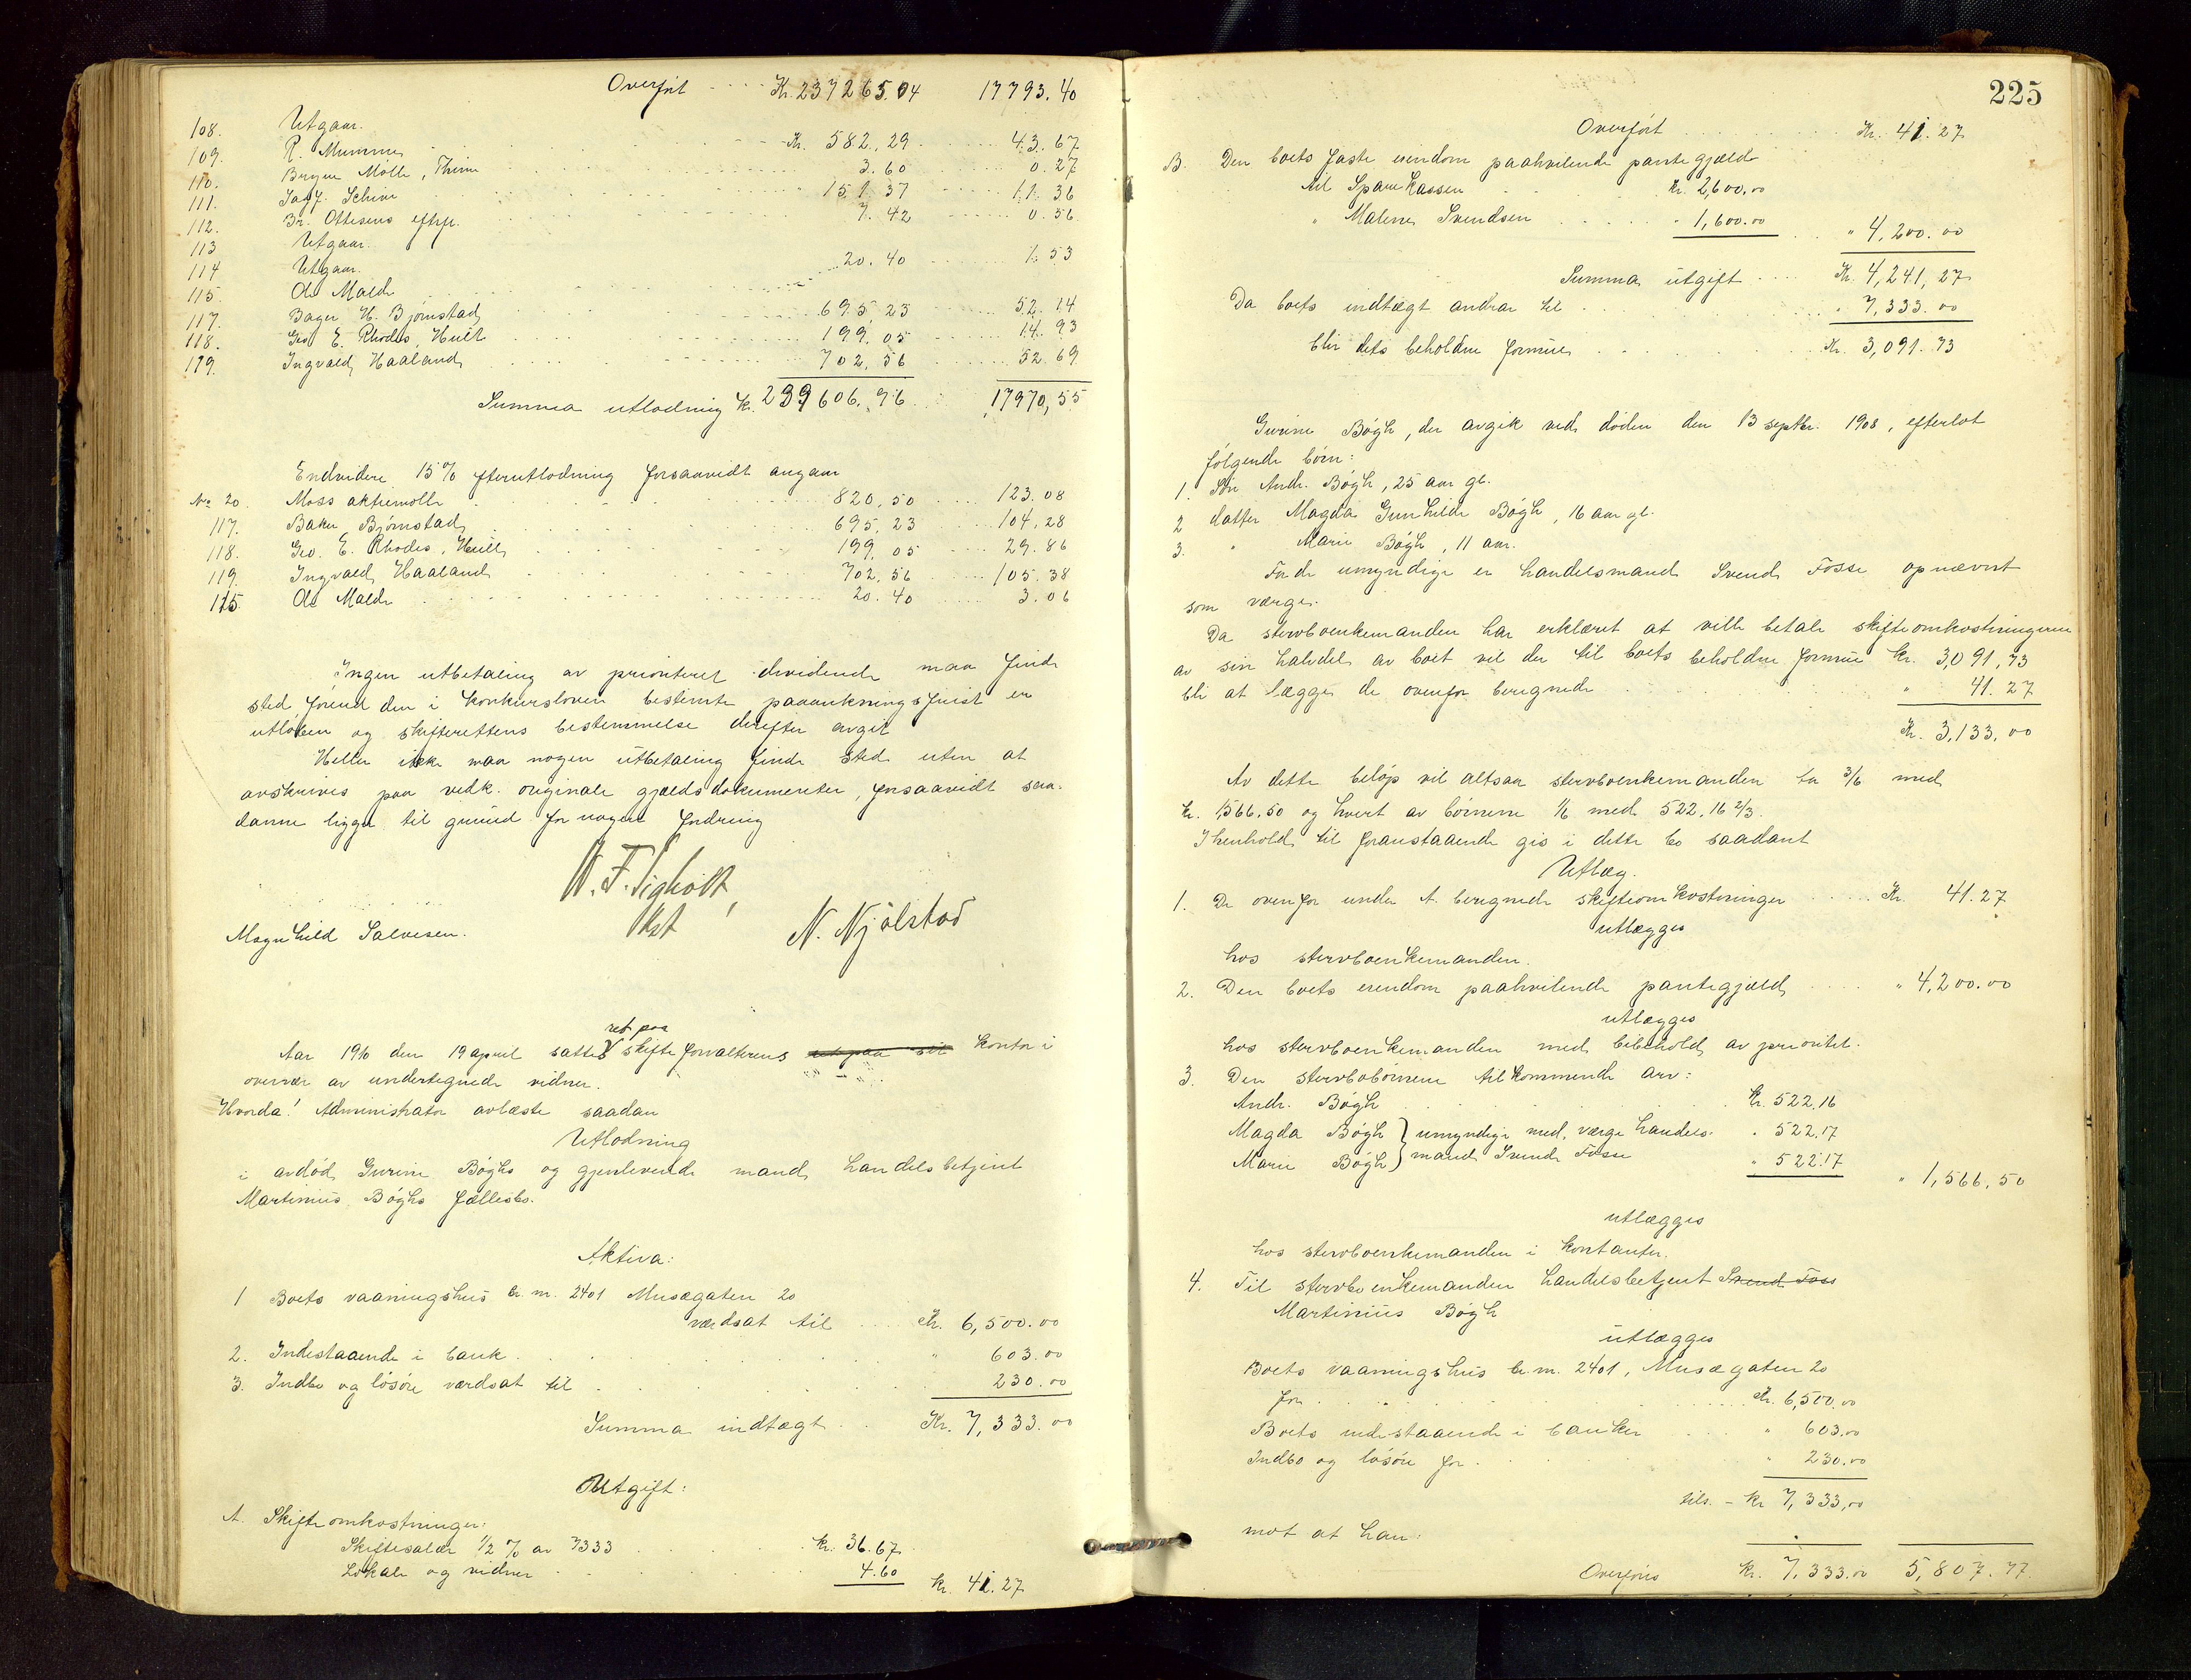 Overført Kr. 237265.04 17793.40
108. Utgaar.
109. R. Mumme Kr. 582.29 43.67
110. Bryne Mølle, Thime 3.60 0.27
111. Schiøtz 151.37 11.36
112. Br. Ottesens eftf. 7.42 0.56
113 Utgaar.
114 Utgaar.
115. Malde 20.40 1.53
117. Bager H. Bjørnstad 695.23 52.14
118. Geo E. Rhodes, Hull 199.05 14.93
119. Ingvald Haaland 702.56 52.69
Summa utlodning kr. 239606.96 17970,55
Endvidere 15% efterutlodning forsaavidt angaar
No 20. Moss aktiemølle 820,50 123.08
117. Baker Bjørnstad 695,23 104,28
118. Geo. E. Rhodes, Hull 199.05 29.86
119. Ingvald Haaland 702.56 105.38
115. Malde 20.40 3.06
Ingen utbetaling av prioriteret dividende maa finde
sted førend den i konkursloven bestemte paaankningsfrist er
utløben og skifterettens bestemmelse derefter avgit
Heller ikke maa nogen utbetaling finde sted uten at
avskrives paa vedk. originale gjældsdokumenter, forsaavidt saa-
danne ligger til grund for nogen fordring
Magnhild Salvesen. N. Njølstad
ret paa
Aar 1910 den 19 april sattes skifteforvalterens kontor i
overvær av undertegnede vidner.
Hvorda! Administrator avlæste saadan
Utlodning
i avdød Gurine Bøghs og gjenlevende mand, handelsbetjent
Martinius Bøghs fællesbo.
Aktiva:
1 Boets vaaningshus br. m. 2401 Musægaten 20
værdsat til Kr. 6,500.00
2. Indestaaende i bank " 603.00
3. Indbo og løsøre værdsat til 230.00
Summa indtægt Kr. 7,333.00
Utgift:
A. Skifteomkostninger:
Skiftesalær 1/2 % av 7333 kr. 36.67
Lokale og vidner 4.60 kr. 41.27
225
Overført Kr. 41.27
B. Den boets faste eiendom paahvilende pantegjæld
til Sparekassen kr. 2,600.00
" Malene Svendsen " 1,600.00 " 4,200.00
Summa utgift Kr. 4,241,27
Da boets indtægt andrar til " 7,333.00
blir dets beholdne formue Kr. 3,091.73
Gurine Bøgh, der avgik ved døden den 13 septbr. 1908, efterlot
følgende børn:
1. Søn Andr. Bøgh, 25 aar gl.
2 datter Magda Gunhilde Bøgh, 16 aar gl.
3. " Marie Bøgh, 11 aar.
For de umyndige er handelsmand Svend Fosse opnævnt
som værge.
Da stervboenkemanden har erklæret at ville betale skifteomkostningerne
av sin halvdel av boet vil der til boets beholdne formue kr. 3,091,73
bli at lægge de ovenfor beregnede " 41.27
Kr. 3,133,00
Av dette beløp vil altsaa stervboenkemanden ta 3/6 med
kr. 1,566.50 og hvert av børnene 1/6 med 522.16 2/3.
I henhold til foranstaaende gis i dette bo saadant
Utlæg.
1. De ovenfor under A. beregnede skifteomkostninger Kr. 41.27
utlægges
hos stervboenkemanden.
2. Den boets eiendom paahvilende pantegjæld " 4,200.00
utlægges
hos stervboenkemanden med bibehold av prioritet.
3. Den stervbobørnene tilkommende arv:
Andr. Bøgh kr. 522.16
Magda Bøgh } umyndige med værge handels- " 522.17
Marie Bøgh } mand Svend Fosse " 522.17 " 1,566,50
utlægges
hos stervboenkemanden i kontanter.
4. Til stervboenkemanden handelsbetjent Svend Foss
Martinius Bøgh
utlægges
Boets vaaningshus br. m. 2401, Musægaten 20
for Kr. 6,500.00
Boets indestaaende i banker " 603.00
Indbo og løsøre for " 230.00
tils. - kr 7,333,00
mot at han:
Overføres Kr. 7,333.00 5,807.77